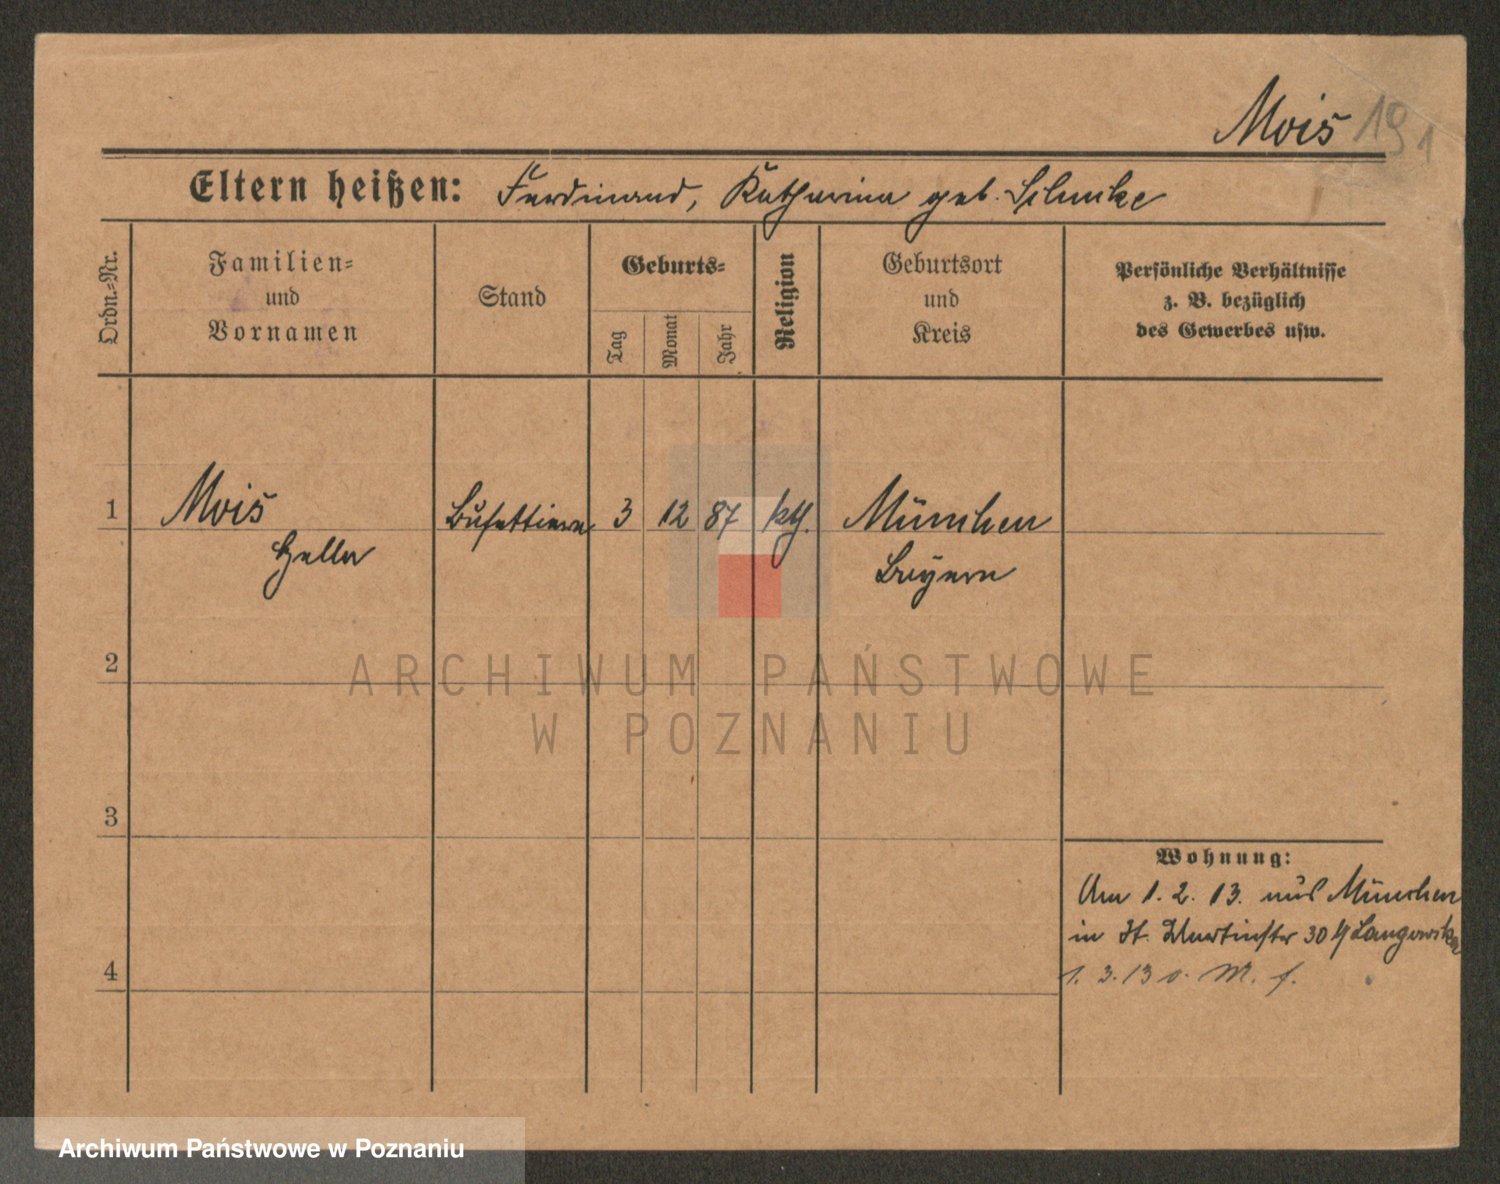 Mois 191
Eltern heißen: Ferdinand, Katharina geb.
Ordn.-Nr.
Familien-
und
Vornamen
Stand
Geburts-
Tag
Monat
Jahr
Religion
Geburtsort
und
Kreis
Persönliche Verhältnisse
z. B. bezüglich
des Gewerbes usw.
1 Mois Büfettiere 3 12 87 kth. München
Bayern
ARCHIWUM PAŃSTWOWE
W POZNANIU
2
3
Wohnung:
Am 1. 2. 13. aus München
in St. Martinstr 30 Langowska
4
1. 3. 13 v. M. f.
Archiwum Państwowe w Poznaniu